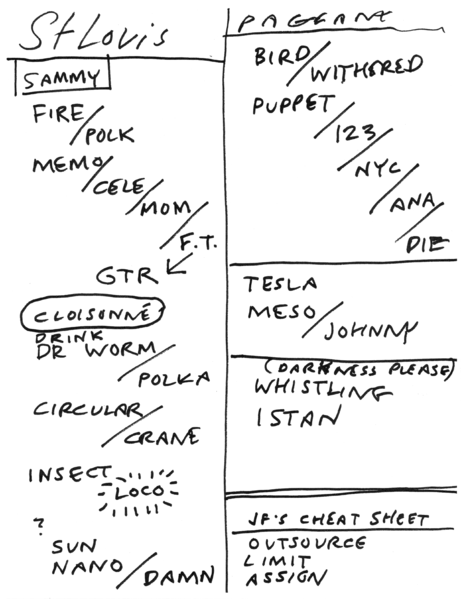 St Louis
SAMMY
FIRE/
POLK
MEMO/
CELE/
MOM/
F.T.
GTR
CLOISONNÉ
DRINK
DR WORM/
POLKA
CIRCULAR/
CRANE
INSECT
LOCO
?
SUN
NANO/DAMN
PAGEANT
BIRD/
WITHERED
PUPPET/
123/
NYC/
ANA/
DIE
TESLA
MESO/
JOHNNY
(DARKNESS PLEASE)
WHISTLING
ISTAN
JF'S CHEAT SHEET
OUTSOURCE
LIMIT
ASSIGN